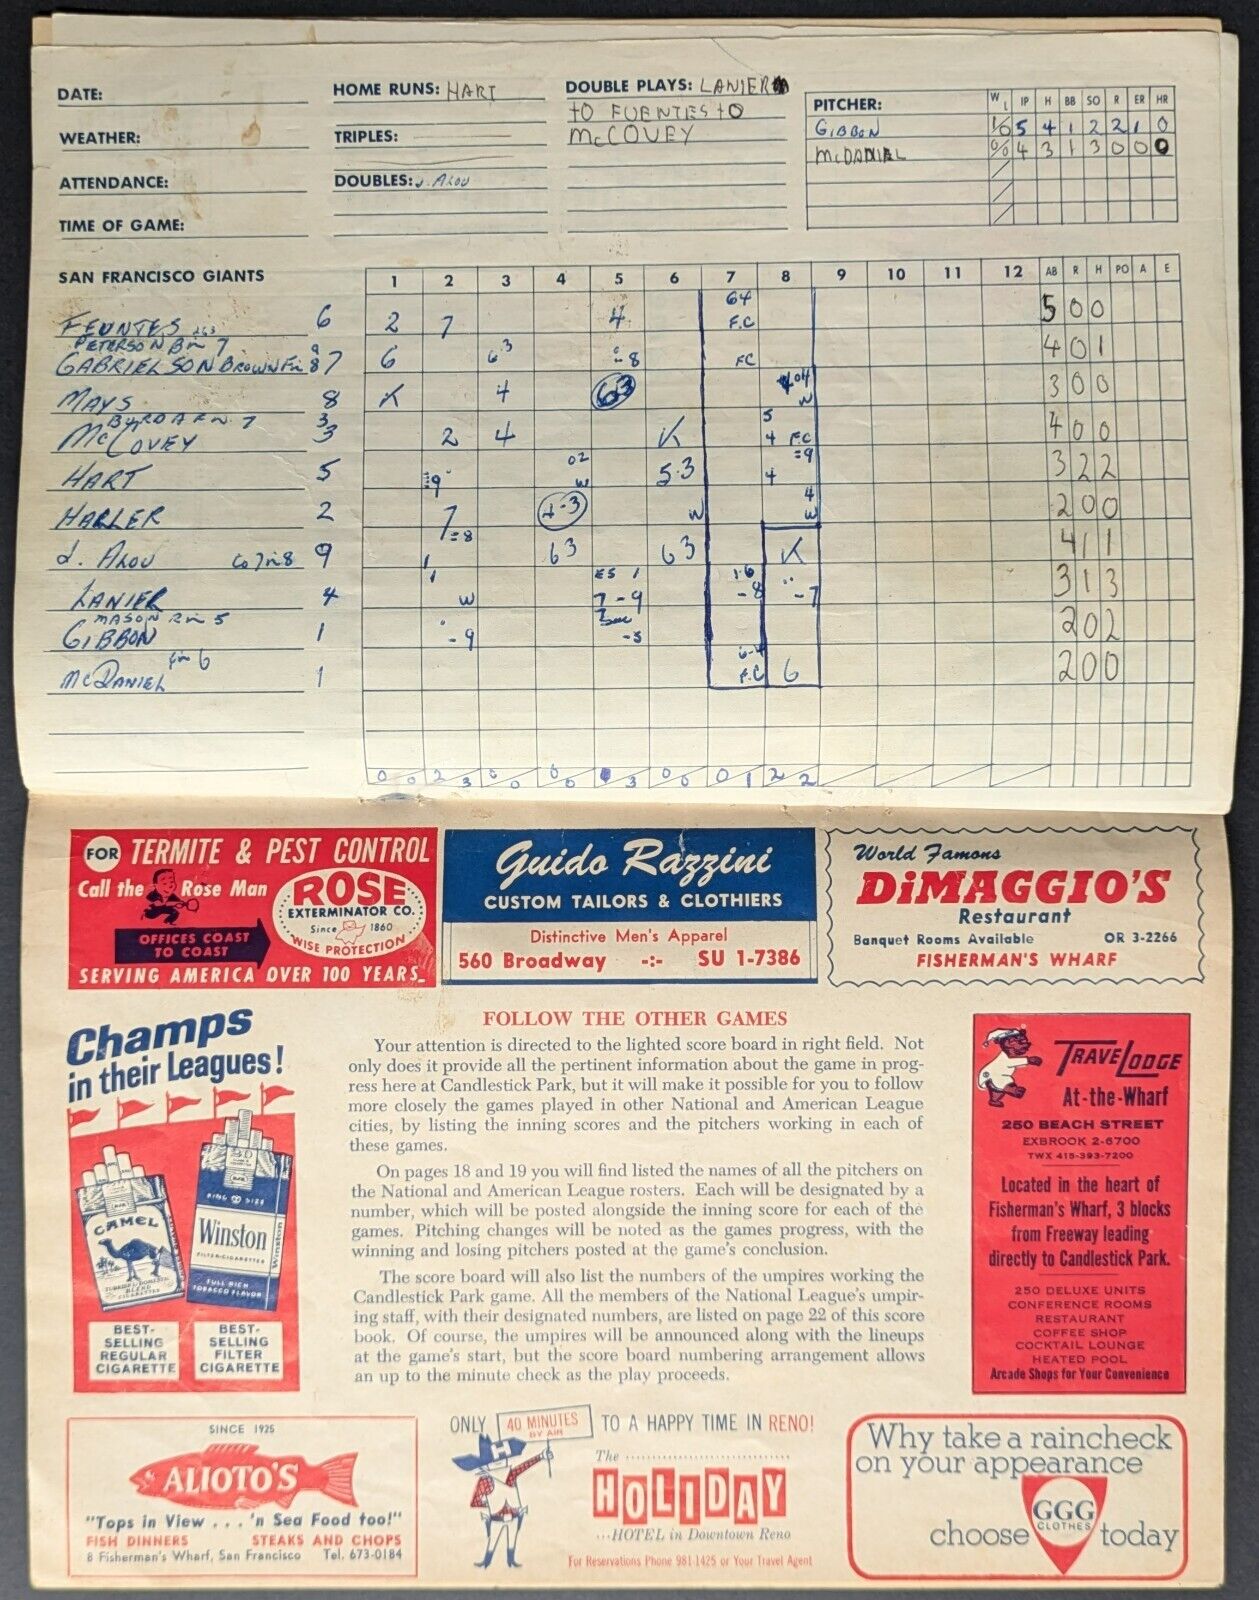 DATE:
HOME RUNS: HART
DOUBLE PLAYS: LANIER
TO FUENTES TO
McCOVEY
WEATHER:
TRIPLES:
ATTENDANCE:
DOUBLES: J. ALOU
TIME OF GAME:
PITCHER: W L IP H BB SO R ER HR
GIBBON 1/0 5 4 1 2 2 1 0
McDANIAL 0/0 4 3 1 3 0 0 0
SAN FRANCISCO GIANTS 1 2 3 4 5 6 7 8 9 10 11 12 AB R H PO A E
FEUNTES 6 2 7 4 64 F.C 5 0 0
PETERSON R in 7
GABRIELSON BROWN F in 8 7 6 63 -8 FC 4 0 1
MAYS 8 K 4 63 W 3 0 0
BYRD A F in 7 3
McCOVEY 3 2 4 K 5 4 F.C 4 0 0
HART 5 =9 02 W 5-3 4 =9 3 2 2
HALLER 2 7 4-3 W 4 W 2 0 0
J. ALOU to 7 in 8 9 =8 63 63 K 4 1 1
LANIER 4 W E5 7-9 16 -8 -7 3 1 3
MASON R in 5
GIBBON 1 -9 Sac -8 2 0 2
McDANIEL fin 6 1 6-4 F.C 6 2 0 0
0 0 2 3 0 0 0 0 3 0 0 0 1 2 2
FOR TERMITE & PEST CONTROL
Call the Rose Man
ROSE
EXTERMINATOR CO.
Since 1860
WISE PROTECTION
OFFICES COAST
TO COAST
SERVING AMERICA OVER 100 YEARS
Guido Razzini
CUSTOM TAILORS & CLOTHIERS
Distinctive Men's Apparel
560 Broadway -:- SU 1-7386
World Famous
DiMAGGIO'S
Restaurant
Banquet Rooms Available OR 3-2266
FISHERMAN'S WHARF
Champs
in their Leagues!
CAMEL
KING SIZE
Winston
FILTER-CIGARETTES
FULL RICH
TOBACCO FLAVOR
Winston
BEST-
SELLING
REGULAR
CIGARETTE
BEST-
SELLING
FILTER
CIGARETTE
FOLLOW THE OTHER GAMES
Your attention is directed to the lighted score board in right field. Not
only does it provide all the pertinent information about the game in prog-
ress here at Candlestick Park, but it will make it possible for you to follow
more closely the games played in other National and American League
cities, by listing the inning scores and the pitchers working in each of
these games.
On pages 18 and 19 you will find listed the names of all the pitchers on
the National and American League rosters. Each will be designated by a
number, which will be posted alongside the inning score for each of the
games. Pitching changes will be noted as the games progress, with the
winning and losing pitchers posted at the game's conclusion.
The score board will also list the numbers of the umpires working the
Candlestick Park game. All the members of the National League's umpir-
ing staff, with their designated numbers, are listed on page 22 of this score
book. Of course, the umpires will be announced along with the lineups
at the game's start, but the score board numbering arrangement allows
an up to the minute check as the play proceeds.
TRAVELODGE
At-the-Wharf
250 BEACH STREET
EXBROOK 2-6700
TWX 415-393-7200
Located in the heart of
Fisherman's Wharf, 3 blocks
from Freeway leading
directly to Candlestick Park.
250 DELUXE UNITS
CONFERENCE ROOMS
RESTAURANT
COFFEE SHOP
COCKTAIL LOUNGE
HEATED POOL
Arcade Shops for Your Convenience
SINCE 1925
ALIOTO'S
"Tops in View . . . 'n Sea Food too!"
FISH DINNERS STEAKS AND CHOPS
8 Fisherman's Wharf, San Francisco Tel. 673-0184
ONLY 40 MINUTES BY AIR TO A HAPPY TIME IN RENO!
H
The
HOLIDAY
...HOTEL in Downtown Reno
For Reservations Phone 981-1425 or Your Travel Agent
Why take a raincheck
on your appearance
choose GGG CLOTHES today